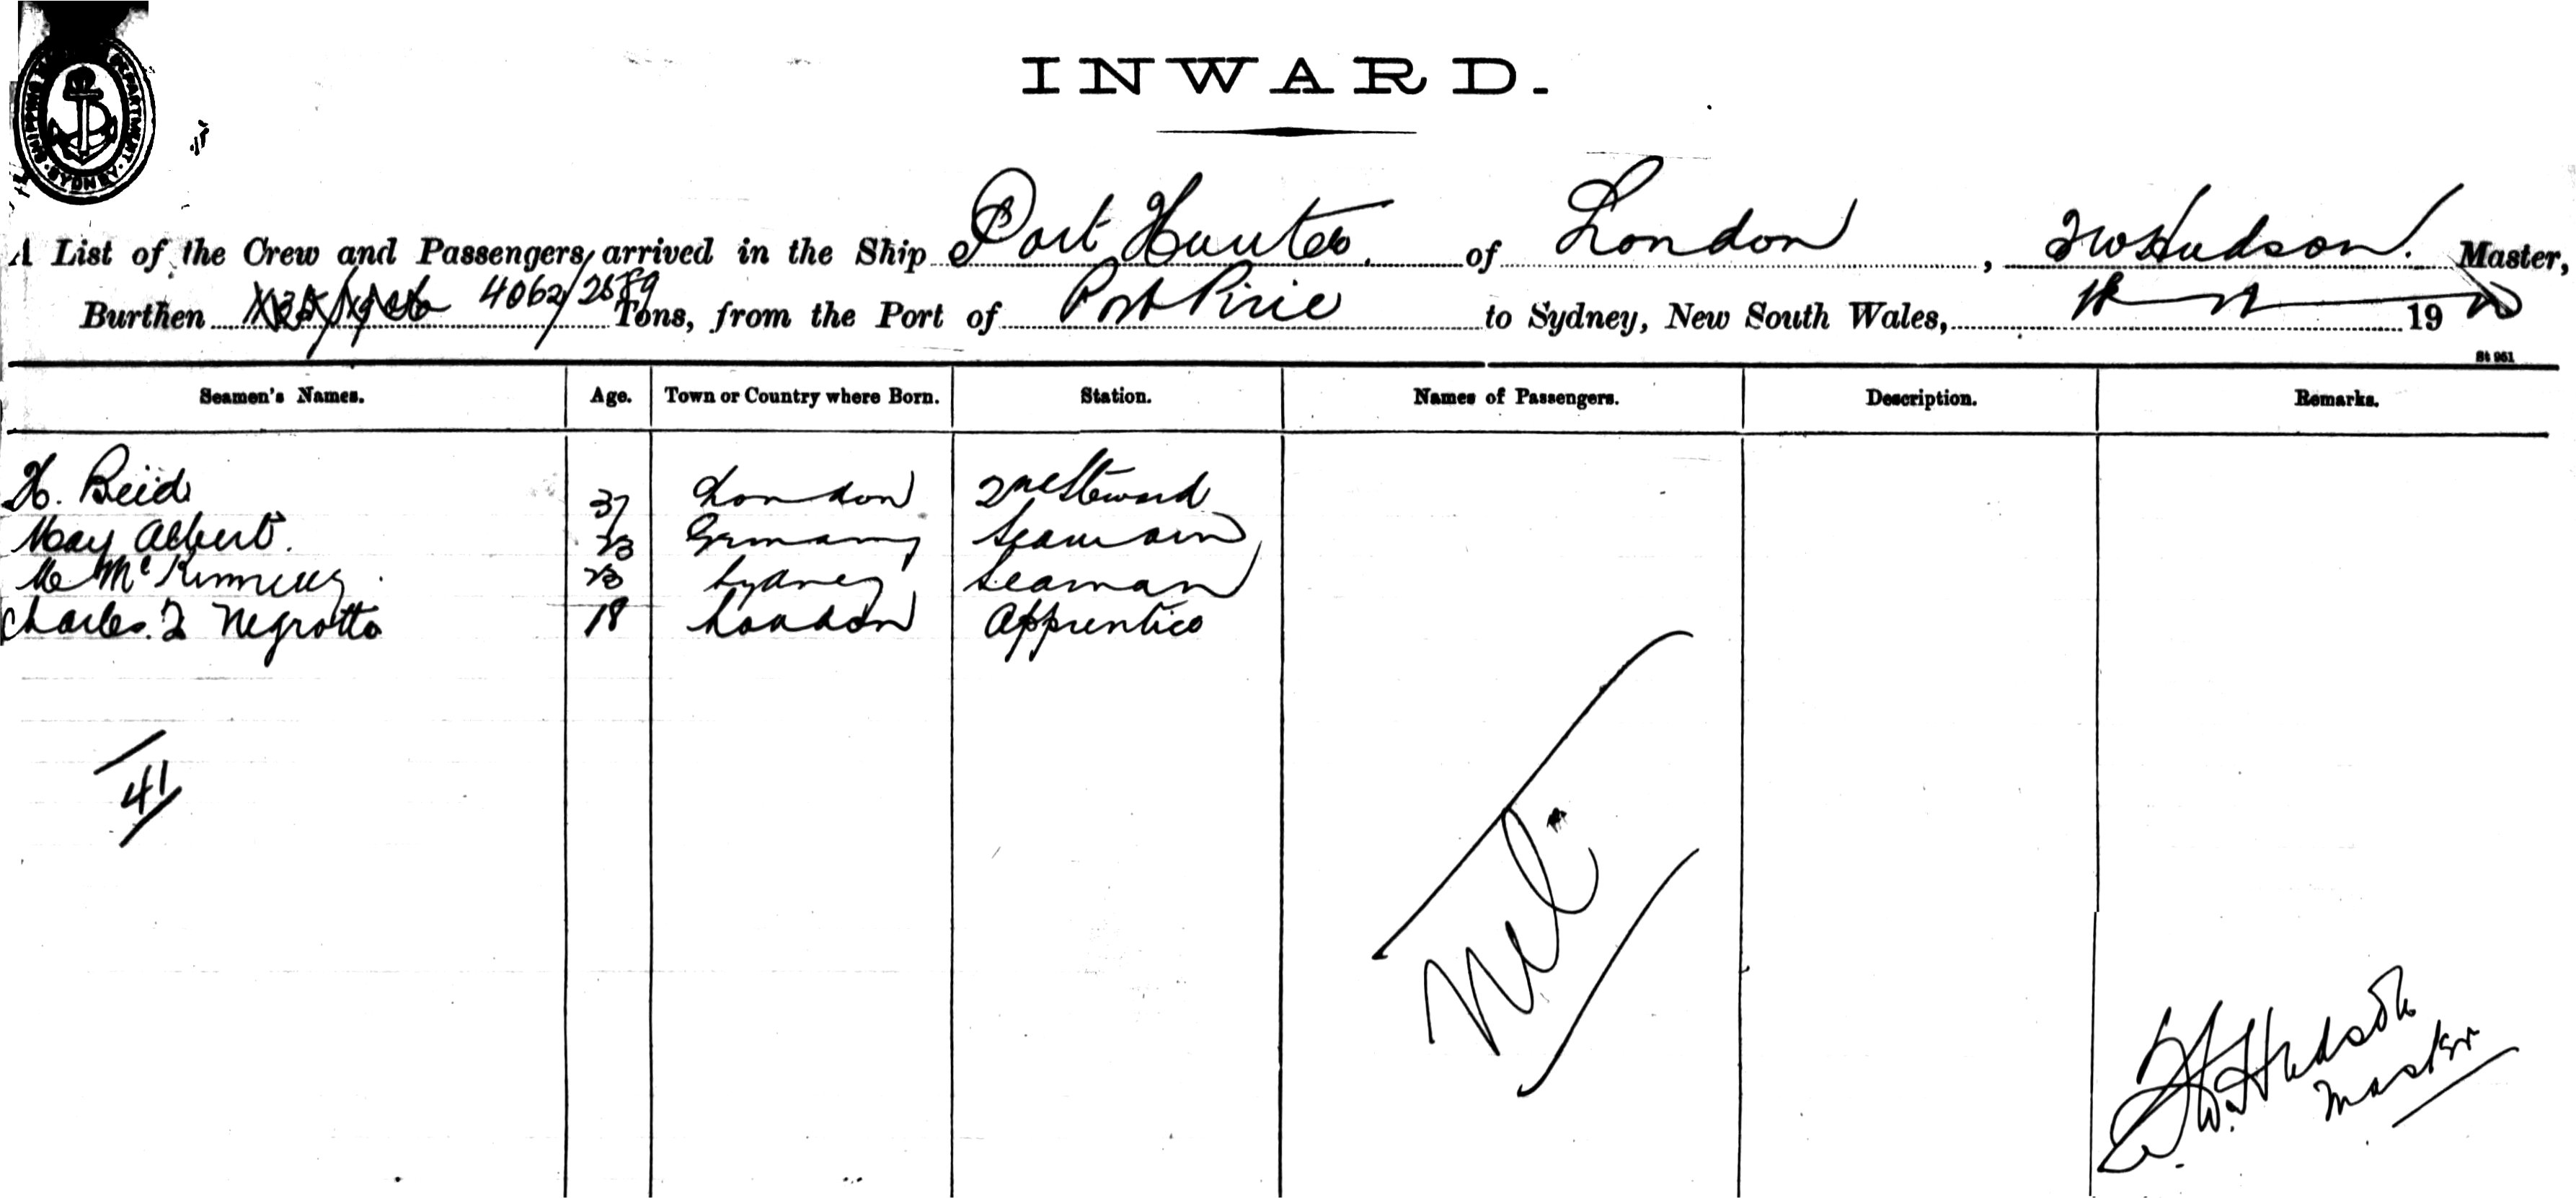 SHIPPING DEPARTMENT SYDNEY
INWARD.
A List of the Crew and Passengers arrived in the Ship Port Hunter of London, F W Hudson. Master,
Burthen 4062/2589 Tons, from the Port of Port Pirie to Sydney, New South Wales, 19
St 961
Seamen's Names. Age. Town or Country where Born. Station. Names of Passengers. Description. Remarks.
H. Reid 37 London 2nd Steward
Max Albert. 23 Germany Seaman
Mc Kinney 23 Sydney Seaman
Charles. F Negrotto 18 London Apprentice
41
Nil
F W. Hudson
Master